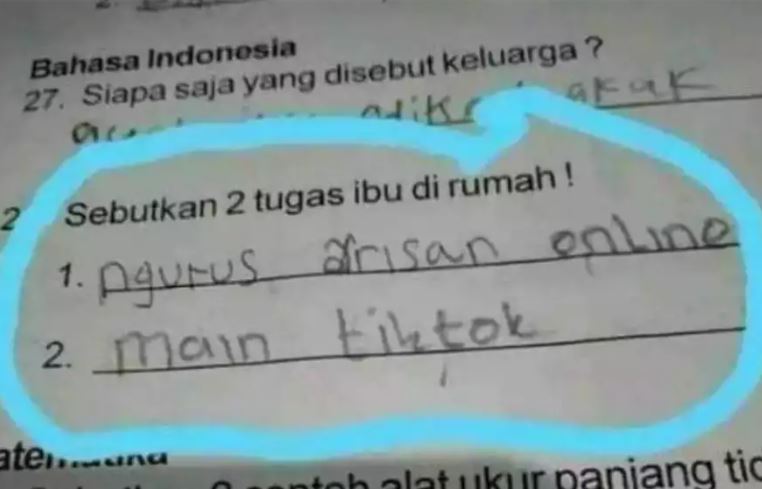 Bahasa Indonesia
27. Siapa saja yang disebut keluarga ?
adik akak
2 Sebutkan 2 tugas ibu di rumah !
1. ngurus arisan online
2. main tiktok
alat ukur panjang